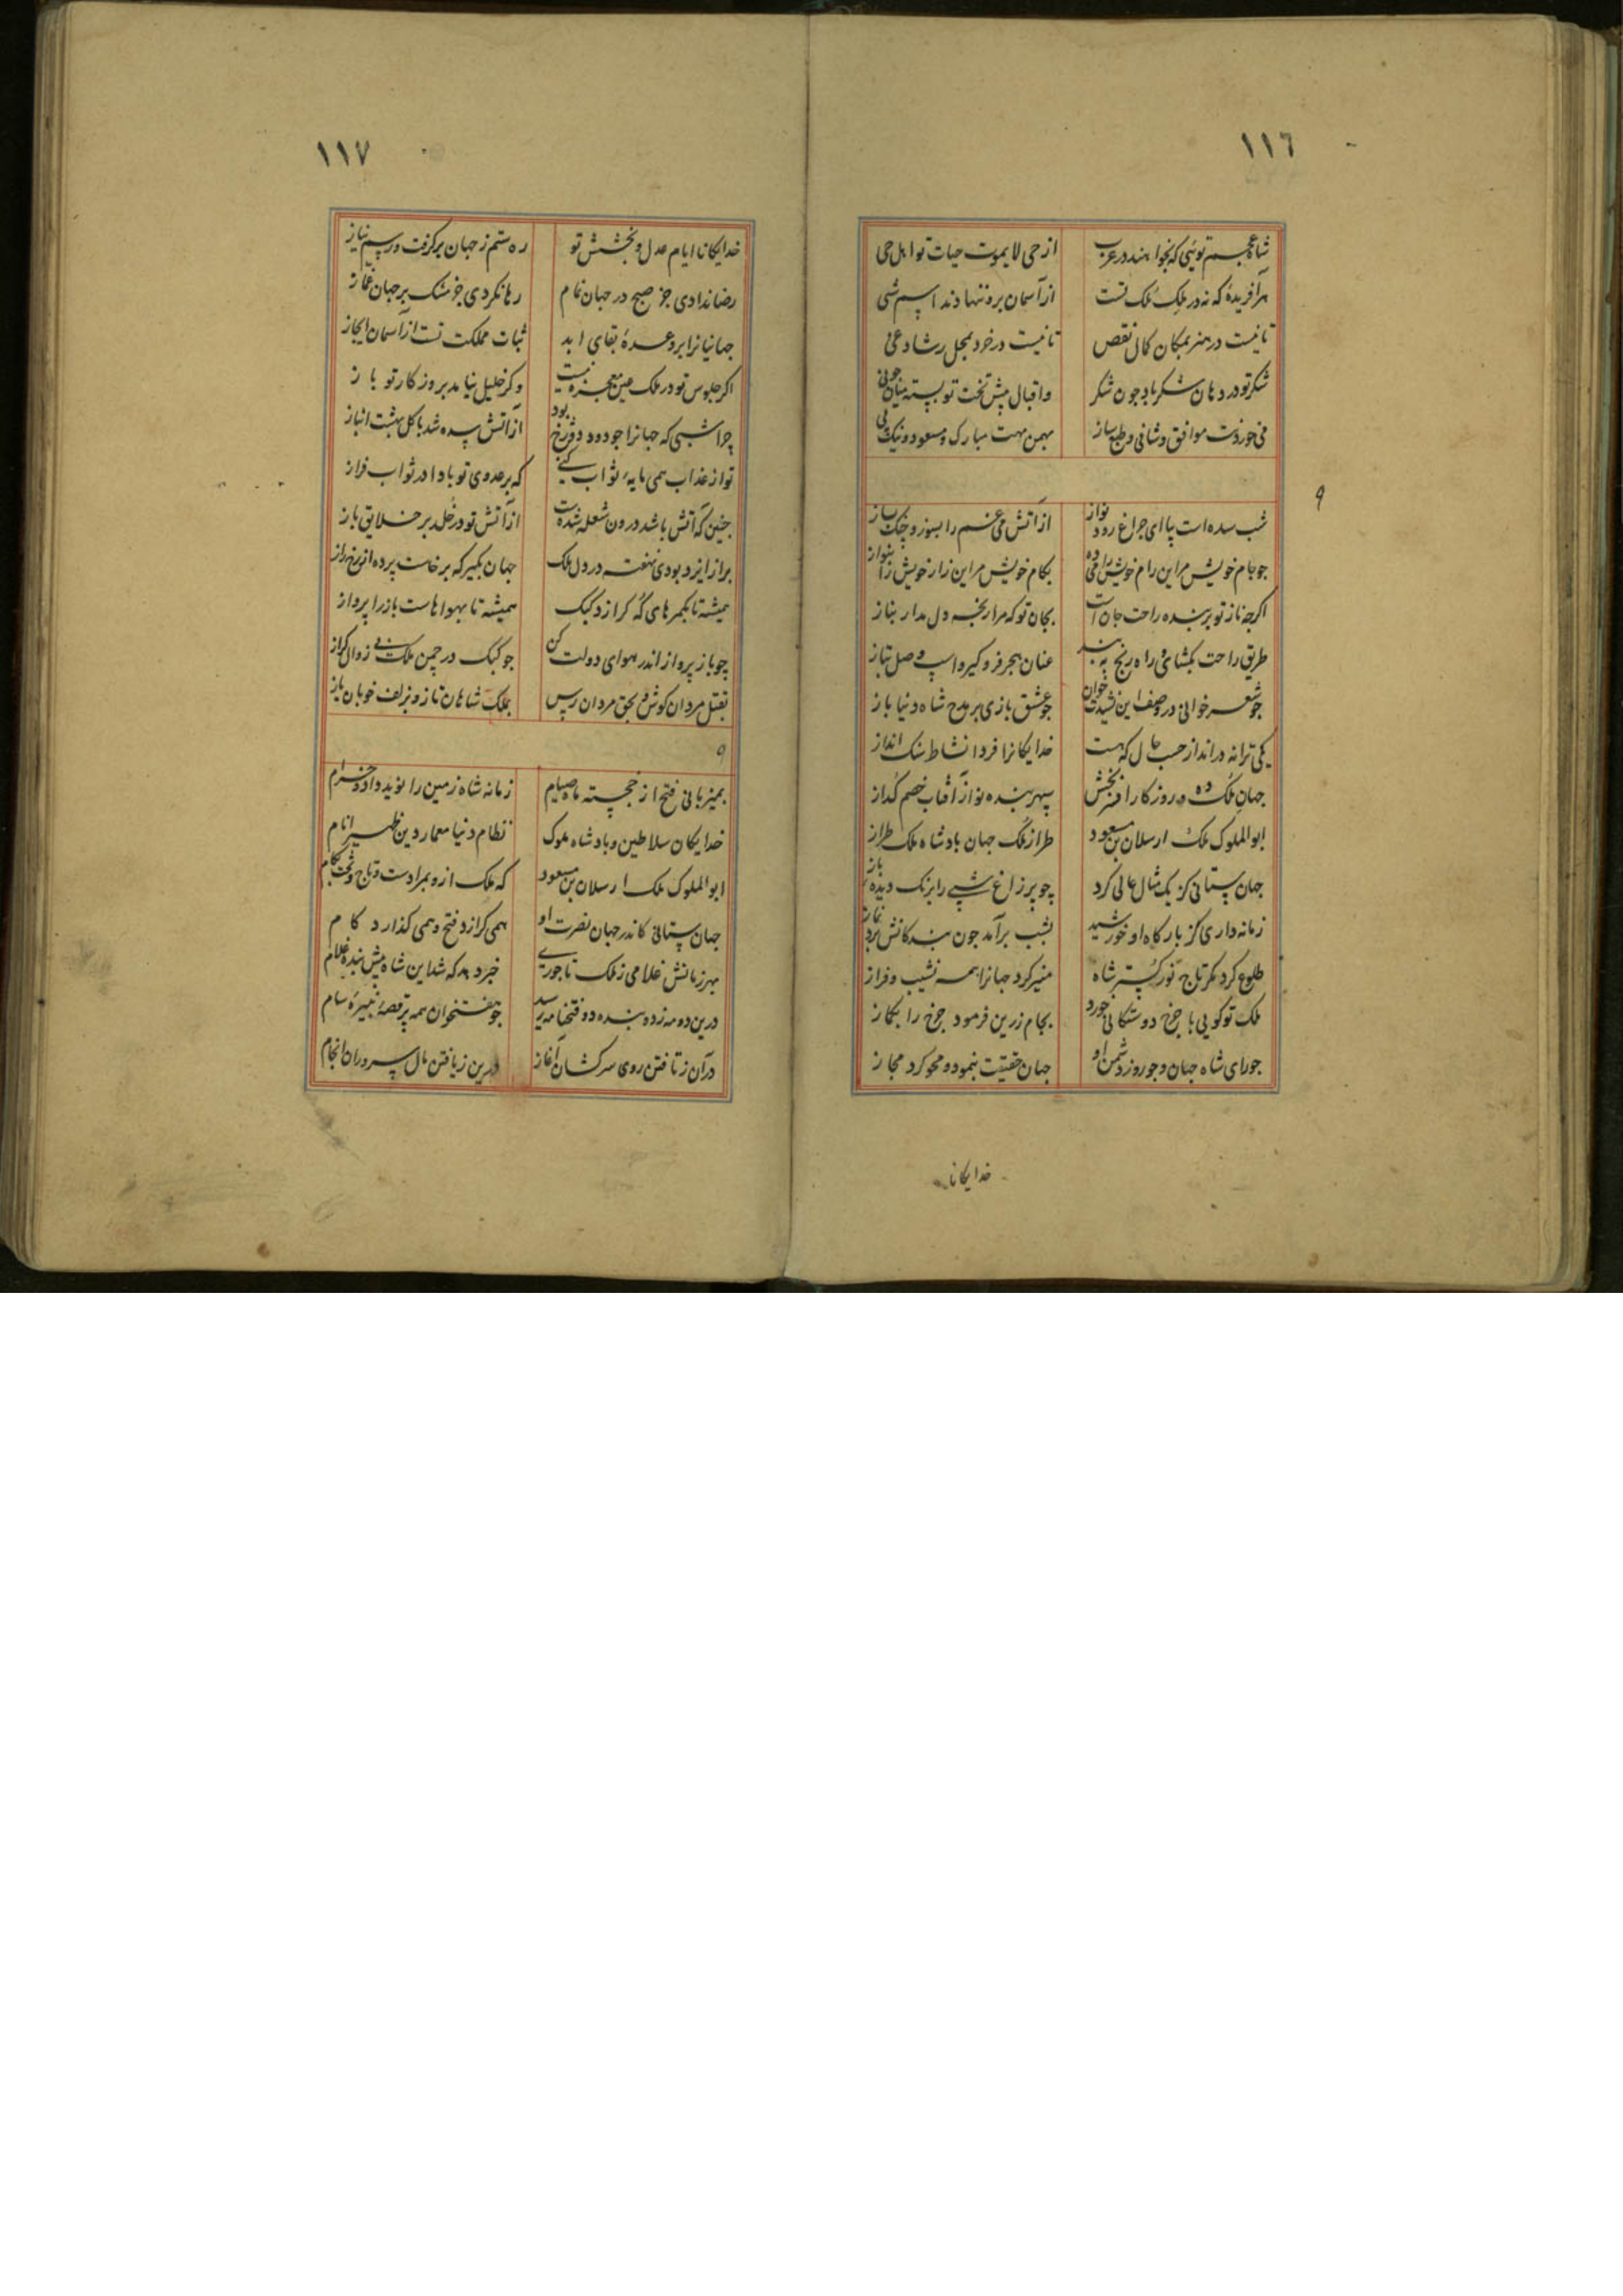 ١١٦
شاه عجم تویی که بخواهند در عرب از حی لا یموت حیات تو اهل حی
هر آفریده که نه در ملک ملک تست از آسمان برو ننهادند اسم شی
تا نیست در هنر بمکان کمال نقص تا نیست در خرد بمحل رشاد غی
شکر تو در دهان شکر باد چون شکر واقبال پیش تخت تو بسته میان چو نی
می خور دست موافق و شافی و طبع ساز بهمن مهت مبارک و مسعود و نیک پی
٩
شب سده است بیا ای چراغ رود نواز از آتش می غم را بسوز و چنک بساز
جو جام خویش مر این رام خویش را می ده بکام خویش مر این زار خویش را بنواز
اکرچه ناز تو بر بنده راحت جان است بجان تو که مرا رنجه دل مدار بناز
طریق راحت بکشای و راه رنج ببند عنان هجر فرو کیر و اسپ وصل بتاز
جو شعر خوانی در وصف این نشید خوان جو عشق بازی بر مدح شاه دنیا باز
یکی ترانه در انداز حسب حال که هست خدایکانرا فردا نشاط سنک انداز
جهان ملک ده و روزکار افسر بخش سپهر بنده نواز آفتاب خصم کداز
ابو الملوک ملک ارسلان بن مسعود طراز ملک جهان بادشاه ملک طراز
جهان ستانی کز یک مثال عالی کرد چو پر زاغ شبی را برنک دیده باز
زمانه داری کز بارکاه او خورشید بشب برآمد جون بندکانش برد نماز
طلوع کرد مکر تاج نور کستر شاه منیر کرد جهانرا همه نشیب و فراز
ملک تو کویی با جرخ دوستکانی خورد بجام زرین فرمود جرخ را بکماز
جو رای شاه جهان و جو روز دشمن او جهان حقیقت بنمود و محو کرد مجاز
خدایکانا
١١٧
خدایکانا ایام عدل و بخشش تو ره ستم ز جهان برکرفت و رسم نیاز
رضا ندادی جز صبح در جهان نمام رها نکردی جز مشک بر جهان غماز
جهانیانرا بر وعده بقای ابد ثبات مملکت تست از آسمان ایجاز
اکر جلوس تو در ملک عین معجزه نیست وکر خلیل نیامد بروزکار تو باز
چرا شبی که جهانرا جو دود دوزخ بود از آتش سده شد با کل بهشت انباز
تو از عذاب همی مایه ثواب کنی که بر عدوی تو بادا در ثواب فراز
جنین که آتش باشد درون شعله شدست از آتش تو در خلد بر خلایق باز
براز ایزد بودی نهفته در دل ملک جهان بکیر که برخاست پرده از رخ راز
همیشه تا بکمرهای که کرازد کبک همیشه تا بهواهاست باز را پرواز
چو باز پرواز اندر هوای دولت کن جو کبک در چمن ملک بی زوال کراز
بقتل مردان کوش و بحق مردان رس بملک شاهان تاز و بزلف خوبان یاز
٩
بمیزبانی فتح از خجسته ماه صیام زمانه شاه زمین را نوید داد و خرام
خدایکان سلاطین و بادشاه ملوک نظام دنیا معمار دین ظهیر انام
ابو الملوک ملک ارسلان بن مسعود که ملک ازو بمرادست و تاج و تخت بکام
جهان ستانی کاندر جهان نصرت او همی کرازد فتح و همی کذارد کام
بهر زمانش غلامی ز ملک تاجوری خبر دهد که شد این شاه پیش بنده غلام
درین دو مه زده بنده دو فتحنامه رسید جو هفتخوان همه پر قصه نبیره سام
در آن ز تافتن روی سرکشان آغاز درین ز یافتن مال سروران انجام